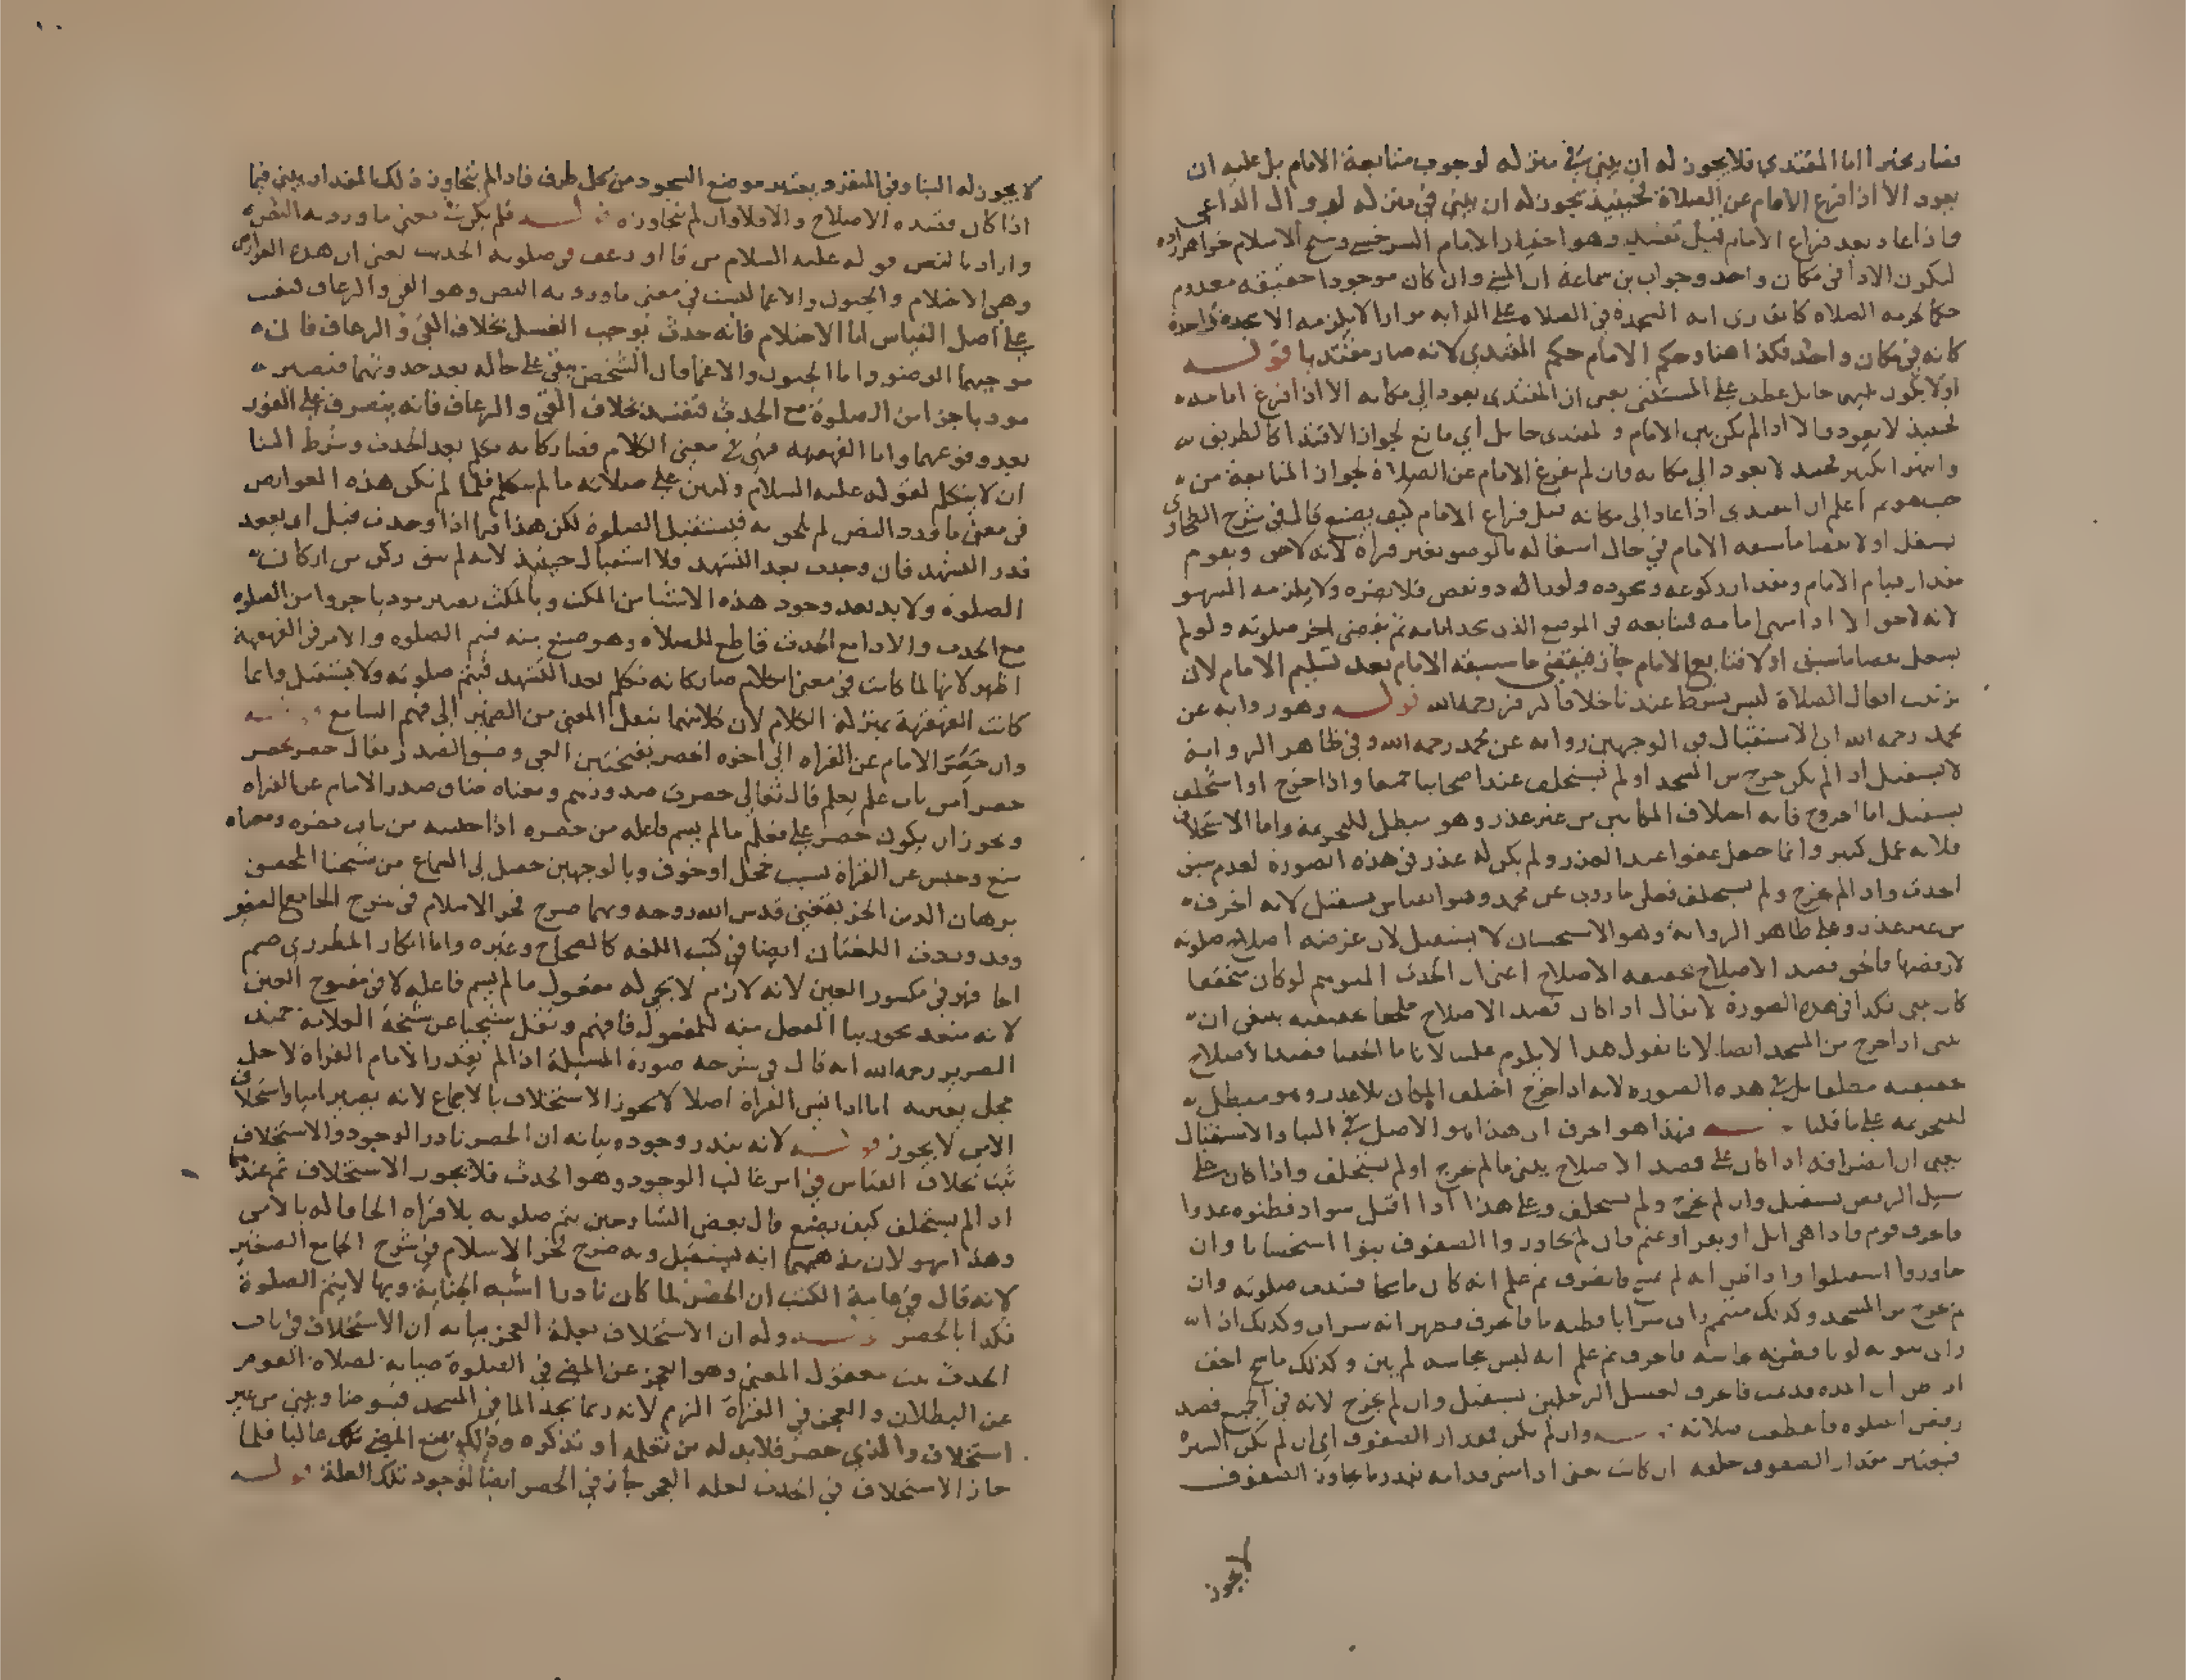 فصار مخيرا اما المقتدي فلا يجوز له ان يبني في منزله لوجوب متابعة الامام بل عليه ان
يعود الا اذا فرغ الامام عن الصلاة فحينئذ يجوز له ان يبني في منزله لزوال الداعي
فاذا عاد بعد فراغ الامام قيل تفسد وهو اختيار الامام السرخسي وشيخ الاسلام خواهرزاده
ليكون الادا في مكان واحد وجواب بن سماعة ان المشي وان كان موجودا حقيقه معدوم
حكما لحرمه الصلاه كا نه السجدة في الصلاه على الدابه مرارا لا يلزمه الا سجدة واحدة
كانه في مكان واحد فكذا هنا وحكم الامام حكم المقتدي لانه صار مقتديا قوله
اولا يكون بينهما حايل عطف على المستثنى يعني ان المقتدى يعود الى مكانه الا اذا فرغ امامه
فحينئذ لا يعود والا اذا لم يكن بين الامام و لمقتدى حايل اي مانع لجواز الاقتدا كالطريق
والنهر الكبير فحينئذ لا يعود الى مكانه وان لم يفرغ الامام عن الصلاة لجواز المتابعة من
حيث هو ثم اعلم ان المقتدى اذا عاد الى مكانه قبل فراغ الامام كيف يصنع قال في شرح الطحاوى
يشتغل اولا بقضا ما سبقه الامام في حال اشتغاله بالوضو بغير قراة لانه لاحق ويقوم
مقدار قيام الامام ومقدار ركوعه وسجوده ولو زاد او نقص فلا يضره ولا يلزمه السهو
لانه لاحق الا اذا انتهى امامه فيتابعه في الموضع الذى يجد امامه ثم يقضي اخر صلوته ولو لم
يشتغل بقضا ما سبق اولا فتابع الامام جاز فيقضي ما سبقه الامام بعد تسليم الامام لان
ترتيب افعال الصلاة ليس بشرط عندنا خلافا لزفر رحمه الله قوله وهو رواية عن
محمد رحمه الله اى الاستقبال في الوجهين رواية عن محمد رحمه الله وفي ظاهر الرواية
لا يستقبل اذا لم يكن خرج من المسجد او لم يستخلف عند اصحابنا جميعا واذا خرج او استخلف
يستقبل اما الخروج فانه اختلاف المكانين من غير عذر وهو مبطل للتحريمة واما الاستخلاف
فلانه عمل كثير وانما جعل عفوا عند العذر ولم يكن له عذر في هذه الصورة لعدم سبق
الحدث واذا لم يخرج ولم يستخلف فعلى ما روي عن محمد وهو القياس يستقبل لانه انحرف
من غير عذر وعلى ظاهر الرواية وهو الاستحسان لا يستقبل لان غرضه اصلاح صلوته
لا رفضها فالحق قصد الاصلاح بحقيقه الاصلاح اعني ان الحدث المتوهم لو كان متحققا
كان يبني فكذا في هذه الصورة لا يقال اذا كان قصد الاصلاح ملحقا بحقيقته ينبغي ان
يبنى اذا خرج من المسجد ايضا لانا نقول هذا لا يلزم علينا لانا ما الحقنا قصد الاصلاح
بحقيقته مطلقا بل في هذه الصوره لانه اذا خرج اختلف المكان بلا عذر وهو مبطل
للتحريمه على ما قلنا قوله فهذا هو الحرف اى هذا هو الاصل في البنا والاستقبال
يعني ان انصرافه اذا كان على قصد الاصلاح يبنى ما لم يخرج او لم يستخلف واذا كان على
سبيل الرفض يستقبل وان لم يخرج ولم يستخلف وعلى هذا اذا اقبل سواد فظنوه عدوا
فانحرف قوم فاذا هي ابل او بقر او غنم فان لم يجاوزوا الصفوف بنوا استحسانا وان
جاوزوا استقبلوا واذا ظن انه لم يمسح فانصرف ثم علم انه كان ماسحا فسدت صلوته وان
لم يخرج من المسجد وكذلك متيمم راى سرابا فظنه ما فانحرف فظهر انه سراب وكذلك اذا
راى ثوبه لونا فظنه نجاسه فانحرف ثم علم انه ليس بنجاسه لم يبن وكذلك ماسح الخف
اذ ظن ان المده قد تمت فانحرف لغسل الرجلين يستقبل وان لم يخرج لانه في الجميع قصد
رفض الصلوه فانقطعت صلاته قوله وان لم يكن فمقدار الصفوف اي ان لم يكن السترة
فيعتبر مقدار الصفوف خلفه ان كانت يعنى اذا مشى قدامه بقدر ما يجاوز الصفوف
لا يجوز
لا يجوز له البنا وفي المنفرد يعتبر موضع السجود من كل طرف فاذا لم يتجاوز ذلك المقدار يبني فيما
اذا كان قصده الاصلاح والا فلا وان لم يتجاوزه قوله فلم يكن في معنى ما ورد به النص
واراد بالنص قوله عليه السلام من قا او رعف في صلوته الحديث يعنى ان هذه العوارض
وهي الاحتلام والجنون والاغما ليست في معنى ما ورد به النص وهو القي والرعاف فبقيت
على اصل القياس اما الاحتلام فانه حدث يوجب الغسل بخلاف القي والرعاف فان
موجبهما الوضو واما الجنون والاغما فان الشخص يبقى على حاله بعد حدوثهما فتصير
موديا جزا من الصلوة مع الحدث فتفسد بخلاف القي والرعاف فانه ينصرف على الفور
بعد وقوعهما واما القهقهه فهي في معنى الكلام فصار كانه تكلم بعد الحدث وشرط البنا
ان لا يتكلم لقوله عليه السلام وليبن على صلاته ما لم يتكلم فلما لم تكن هذه العوارض
في معنى ما ورد النص لم تلحق به فيستقبل الصلوة لكن هذا فيما اذا وجدت قبل ان يقعد
قدر التشهد فان وجدت بعد التشهد فلا استقبال حينئذ لانه لم يبق ركن من اركان
الصلوة ولا بد بعد وجود هذه الاشيا من المكث وبالمكث يصير موديا جزوا من الصلوه
مع الحدث والادا مع الحدث قاطع للصلاه وهو صنع منه فيتم الصلوه والامر في القهقهة
اظهر لانها لما كانت في معنى الكلام صار كانه تكلم بعد التشهد فيتم صلوته ولا يستقبل وانما
كانت القهقهة بمنزلة الكلام لان كلاهما ينقل المعنى من الضمير الى فهم السامع قوله
وان حصر الامام عن القراه الى اخره الحصر بفتحتين العي وضيق الصدر يقال حصر يحصر
حصرا من باب علم يعلم قال تعالى حصرت صدورهم ومعناه ضاق صدر الامام عن القراه
ويجوز ان يكون حصر على فعل ما لم يسم فاعله من حصره اذا حبسه من باب نصره ومعناه
منع وحبس عن القراة بسبب خجل او خوف وبالوجهين حصل لى السماع من شيخنا المحقق
برهان الدين الخريفغني قدس الله روحه وبهما صرح فخر الاسلام في شرح الجامع الصغير
وقد وردت اللغتان ايضا في كتب اللغه كالصحاح وغيره واما انكار المطرزى ضم
الحا فهو في مكسور العين لانه لازم لا يجي له مفعول ما لم يسم فاعله لا في مفتوح العين
لانه متعد يجوز بنا الفعل منه للمفعول فافهم ونقل شيخنا عن شيخه العلامه حميد
الضرير رحمه الله انه قال في شرحه صورة المسيلة اذا لم يقدر الامام القراة لاجل
خجل يعتريه اما اذا نسي القراة اصلا لا يجوز الاستخلاف بالاجماع لانه يصير اميا واستخلاف
الامي لا يجوز قوله لانه يندر وجوده وبيانه ان الحصر نادر الوجود والاستخلاف
ثبت بخلاف القياس في امر غالب الوجود وهو الحدث فلا يجوز الاستخلاف ثم عندهما
اذا لم يستخلف كيف يصنع قال بعض الشارحين يتم صلوته بلا قراه الحاقا له بالامى
وهذا سهو لان مذهبهما انه يستقبل وبه صرح فخر الاسلام في شرح الجامع الصغير
لانه قال في عامة الكتب ان الحصر لما كان نادرا اشبه الجنابة وبها لا يتم الصلوة
فكذا بالحصر قوله وله ان الاستخلاف بعلة العجز بيانه ان الاستخلاف في باب
الحدث ثبت معقول المعنى وهو العجز عن المضي في الصلوة صيانة لصلاة القوم
عن البطلان والعجز في القراة الزم لانه ربما يجد الما في المسجد فيتوضا ويبني من غير
استخلاف والذي حصر فلا بد له من تعلم او تذكره وذلك يمنع المضي غالبا فلما
جاز الاستخلاف في الحدث لعله العجز جاز في الحصر ايضا لوجود تلك العلة قوله